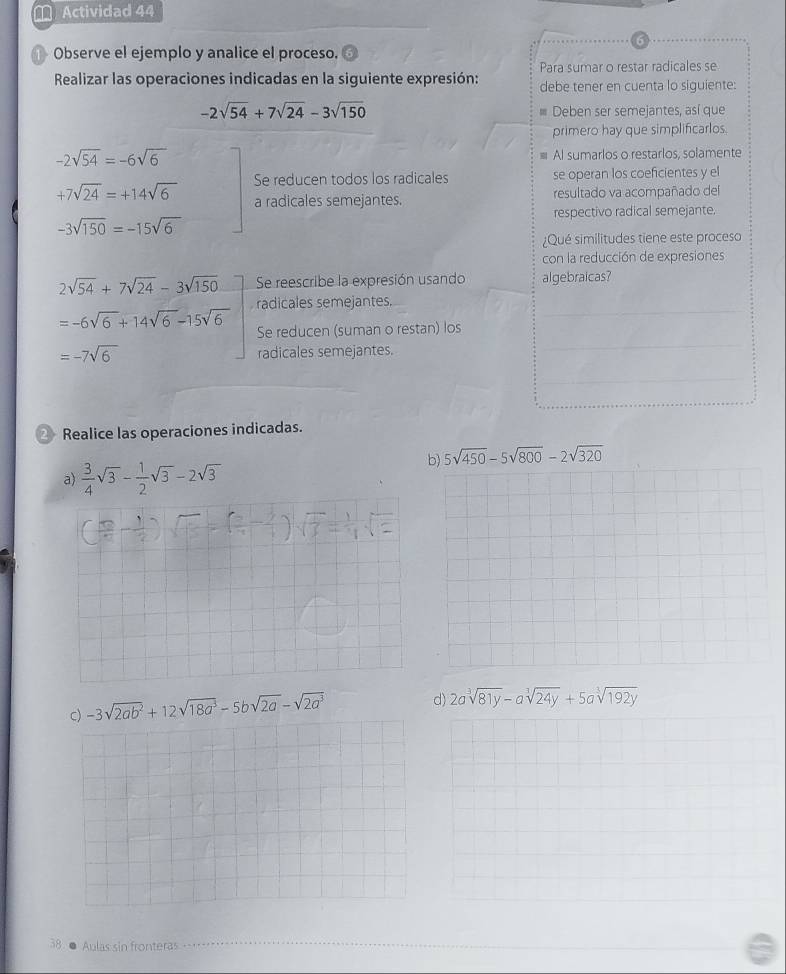 Actividad 44
1 Observe el ejemplo y analice el proceso. 6
Realizar las operaciones indicadas en la siguiente expresión:
-2√54 + 7√24 - 3√150
-2√54 = -6√6
+7√24 = +14√6
-3√150 = -15√6
Se reducen todos los radicales
a radicales semejantes.
2√54 + 7√24 - 3√150
= -6√6 + 14√6 -15√6
= -7√6
Se reescribe la expresión usando
radicales semejantes.
Se reducen (suman o restan) los
radicales semejantes.
6
Para sumar o restar radicales se
debe tener en cuenta lo siguiente:
■ Deben ser semejantes, así que
primero hay que simplificarlos.
■ Al sumarlos o restarlos, solamente
se operan los coeficientes y el
resultado va acompañado del
respectivo radical semejante.
¿Qué similitudes tiene este proceso
con la reducción de expresiones
algebraicas?
2 Realice las operaciones indicadas.
a) 3/4 √3 - 1/2 √3 - 2√3
b) 5√450 - 5√800 - 2√320
c) -3√2ab² + 12√18a³ - 5b√2a - √2a³
d) 2a∛81y - a∛24y + 5a∛192y
38 ● Aulas sin fronteras